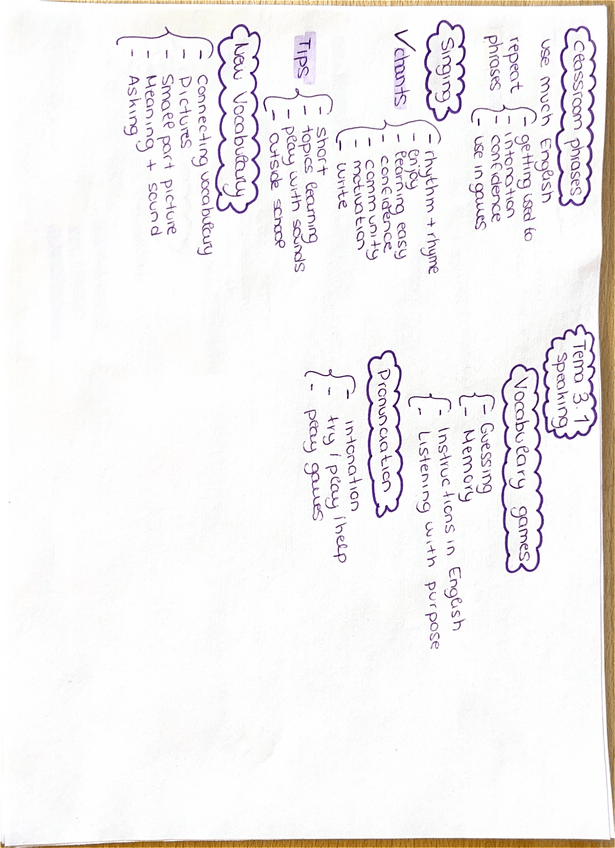 Tema 3.1
speaking
Classroom phrases
use much English
repeat
phrases
- getting used to
- intonation
- confidence
- use in games
Singing
√chants
- rhythm + rhyme
- enjoy
- learning easy
- confidence
- community
- motivation
- write
Tips
- short
- topics learning
- play with sounds
- outside school
New Vocabulary
- Connecting vocabulary
- Pictures
- Small part picture
- Meaning + sound
- Asking
Vocabulary games
- Guessing
- Memory
- Instructions in English
- Listening with purpose
Pronunciation
- intonation
- try / play / help
- play games